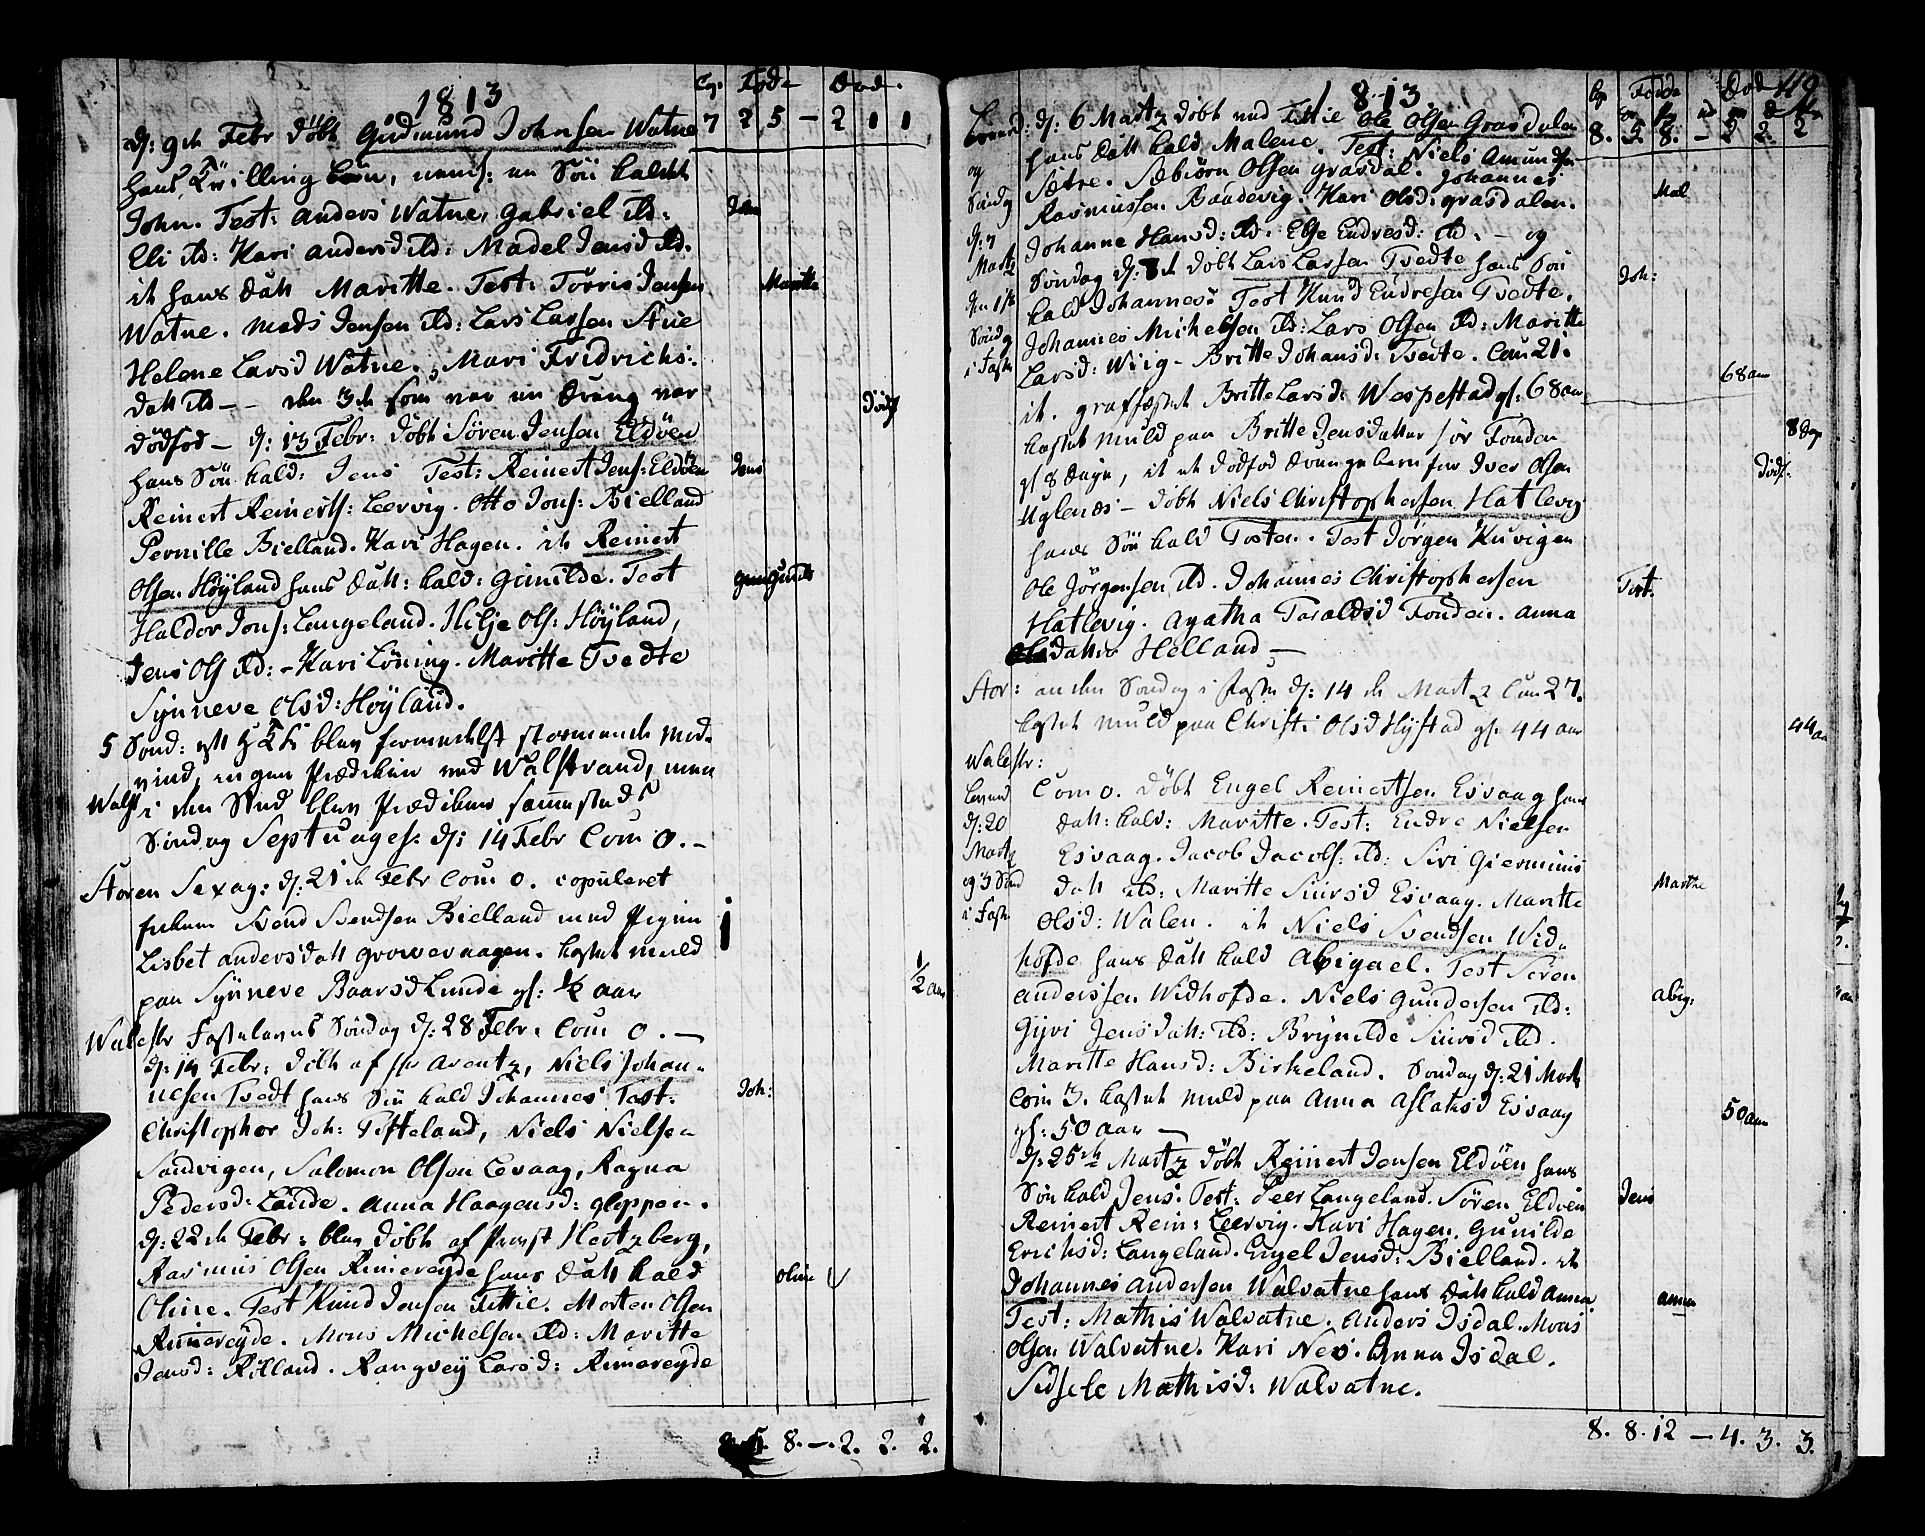 1813
Cop. Föde Död.
7 2 5 – 2 1 1
d: 9de Febr döbt Gudmund Johnsen Watne
hans Tvilling börn, nemlig: en Sön kaldet
John. Test: anders Watne, Gabriel ibd:
John
Eli ibd: Kari andersd ibd: Madel Jensd ibd.
it hans datt Maritte. Test: Torris Jensen
Maritte
Watne. Mads Jensen ibd: Lars Larsen Stue
Helene Larsd Watne. Mari Fridrichs:
datt ibd – den 3de som var en dreng var
dödf
dödfød – d: 13 Febr: döbt Sören Jensen Eldöen
hans Sön kald: Jens Test: Reinert Jens: Eldöen
Jens
Reinert Reinerts: Leervig. Otto Jons: Bielland
Pernille Bielland. Kari Hagen. it Reinert
Olsen Höyland hans datt: kald: Gunilde. Test
Gunilde
Haldor Jons: Langeland. Hilje Ols: Höyland,
Jens Ols ibd: – Kari Löning. Maritte Tvedte
Synneve Olsd: Höyland.
5 Sönd: eft H3K blev formedelst stormende mod-
vind, ingen Prædiken ved Walstrand, men
Walst i den Sted blev Prædiken sammesteds
Söndag Septuages: d: 14 Febr Com 0. –
Storen Sexag: d: 21de Febr Com 0. copuleret
1
Bend Bendsen Bielland med Pigen
Lisbet andersdatt growevaagen. kastet muld
paa Synneve Baarsd Lunde gl: ½ aar
½ aar
Walestr Fastelavns Söndag d: 28 Febr: Com 0. –
d: 14 Febr: döbt af Hr Arentz, Niels Johan-
nesen Tvedt hans Sön kald Johannes Test:
Joh:
Christopher Joh: Tefteland, Niels Nielsen
Sandvigen, Salomon Olsen Levaag, Ragna
Pedersd: Lande. Anna Haagensd: gloppen.
d: 22de Febr: blev döbt af Provst Hertzberg,
Rasmus Olsen Rimereyde hans datt kald
Oline
Oline. Test Knud Jensen Tittie. Morten Olsen
Rimereyde. Mons Michelsen ibd: Maritte
Jensd: Rilland. Rangvey Larsd: Rimereyde
5. 8. –. 2. 2. 2.
1813
119
Cop Föde Död
8. 5. 8. – 2 2. 2
d: 6 Martz döbt ved Tittie Ole Olsen Grasdalen
og
Söndg
d: 7
Martz
den 1ste
Söndg
i Faste
hans datt kald Malene. Test: Niels Amundsen
Mal
Sætre. Sæbiörn Olsen grasdal. Johannes
Rasmussen Baadevig. Kari Olsd: grasdalen.
Johanne Hansd: ibd. Else Endresd: ibd. – og
Söndag d: 8de döbt Lars Larsen Tvedte hans Sön
Joh:
kald Johannes: Test Knud Endresen Tvedte.
Johannes Michelsen ibd: Lars Olsen ibd: Maritte
Larsd: Wiig – Britte Johansd: Tvedte. Com 21.
it. graffæstet Britte Larsd: Wespestad gl: 68 aar
68 aar
kastet muld paa Britte Jensdatter sör Fonden
8 dag
gl 8 dage, it et dödfød drenge barn for Iver Olsen
dödf.
Uglenes – döbt Niels Christophersen Hatlevig
hans Sön kald Tosten. Test Jörgen Kuvigen
Tost.
Ole Jörgensen ibd. Johannes Christophersen
Hatlevig. Agatha Taraldsd Fonden. Anna
Olsdatter Helland –
Stor: anden Söndag i faste d: 14de Martz Com 27.
kastet muld paa Christi Olsd Hystad gl: 44 aar
44 aar
Walestr:
d: 20
Martz
og 3 Sönd
i Faste
Com 0. döbt Engel Reinertsen Esvaag hans
datt: kald: Maritte. Test: Endre Nielsen
Maritte
Esvaag. Jacob Jacobs: ibd: Siri Giermunds
datt ibd: Maritte Siursd Esvaag. Maritte
Olsd: Walen. it Niels Svendsen Wid-
hofde hans datt kald Abigael. Test Sören
abig:
anderssen Widhofde. Niels Gundersen ibd:
Gyri Jensdatt: ibd: Brynilde Siursd ibd.
Maritte Hansd: Birkeland. Söndag d: 21 Martz
Com 3. kastet muld paa Anna Aslaksd Esvaag
gl: 50 aar –
50 aar
d: 25de Martz döbt Reinert Jensen Eldöen hans
Sön kald Jens. Test: Peer Langeland. Sören Eldöen
Jens
Reinert Rein: Leervig. Kari Hagen. Gunilde
Erichsd: Langeland. Engel Jensd: Bielland. it
Johannes andersen Walvatne hans datt kald Anna
anna
Test: Mathis Walvatne. Anders Isdal. Mons
Olsen Walvatne. Kari Nes. Anna Isdal.
Sidsele Mathisd: Walvatne.
8. 8. 12 – 4. 3. 3.